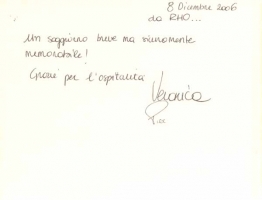 8 Dicembre 2006
da RHO...
Un soggiorno breve ma veramente
memorabile!
Grazie per l'ospitalità
Veronica